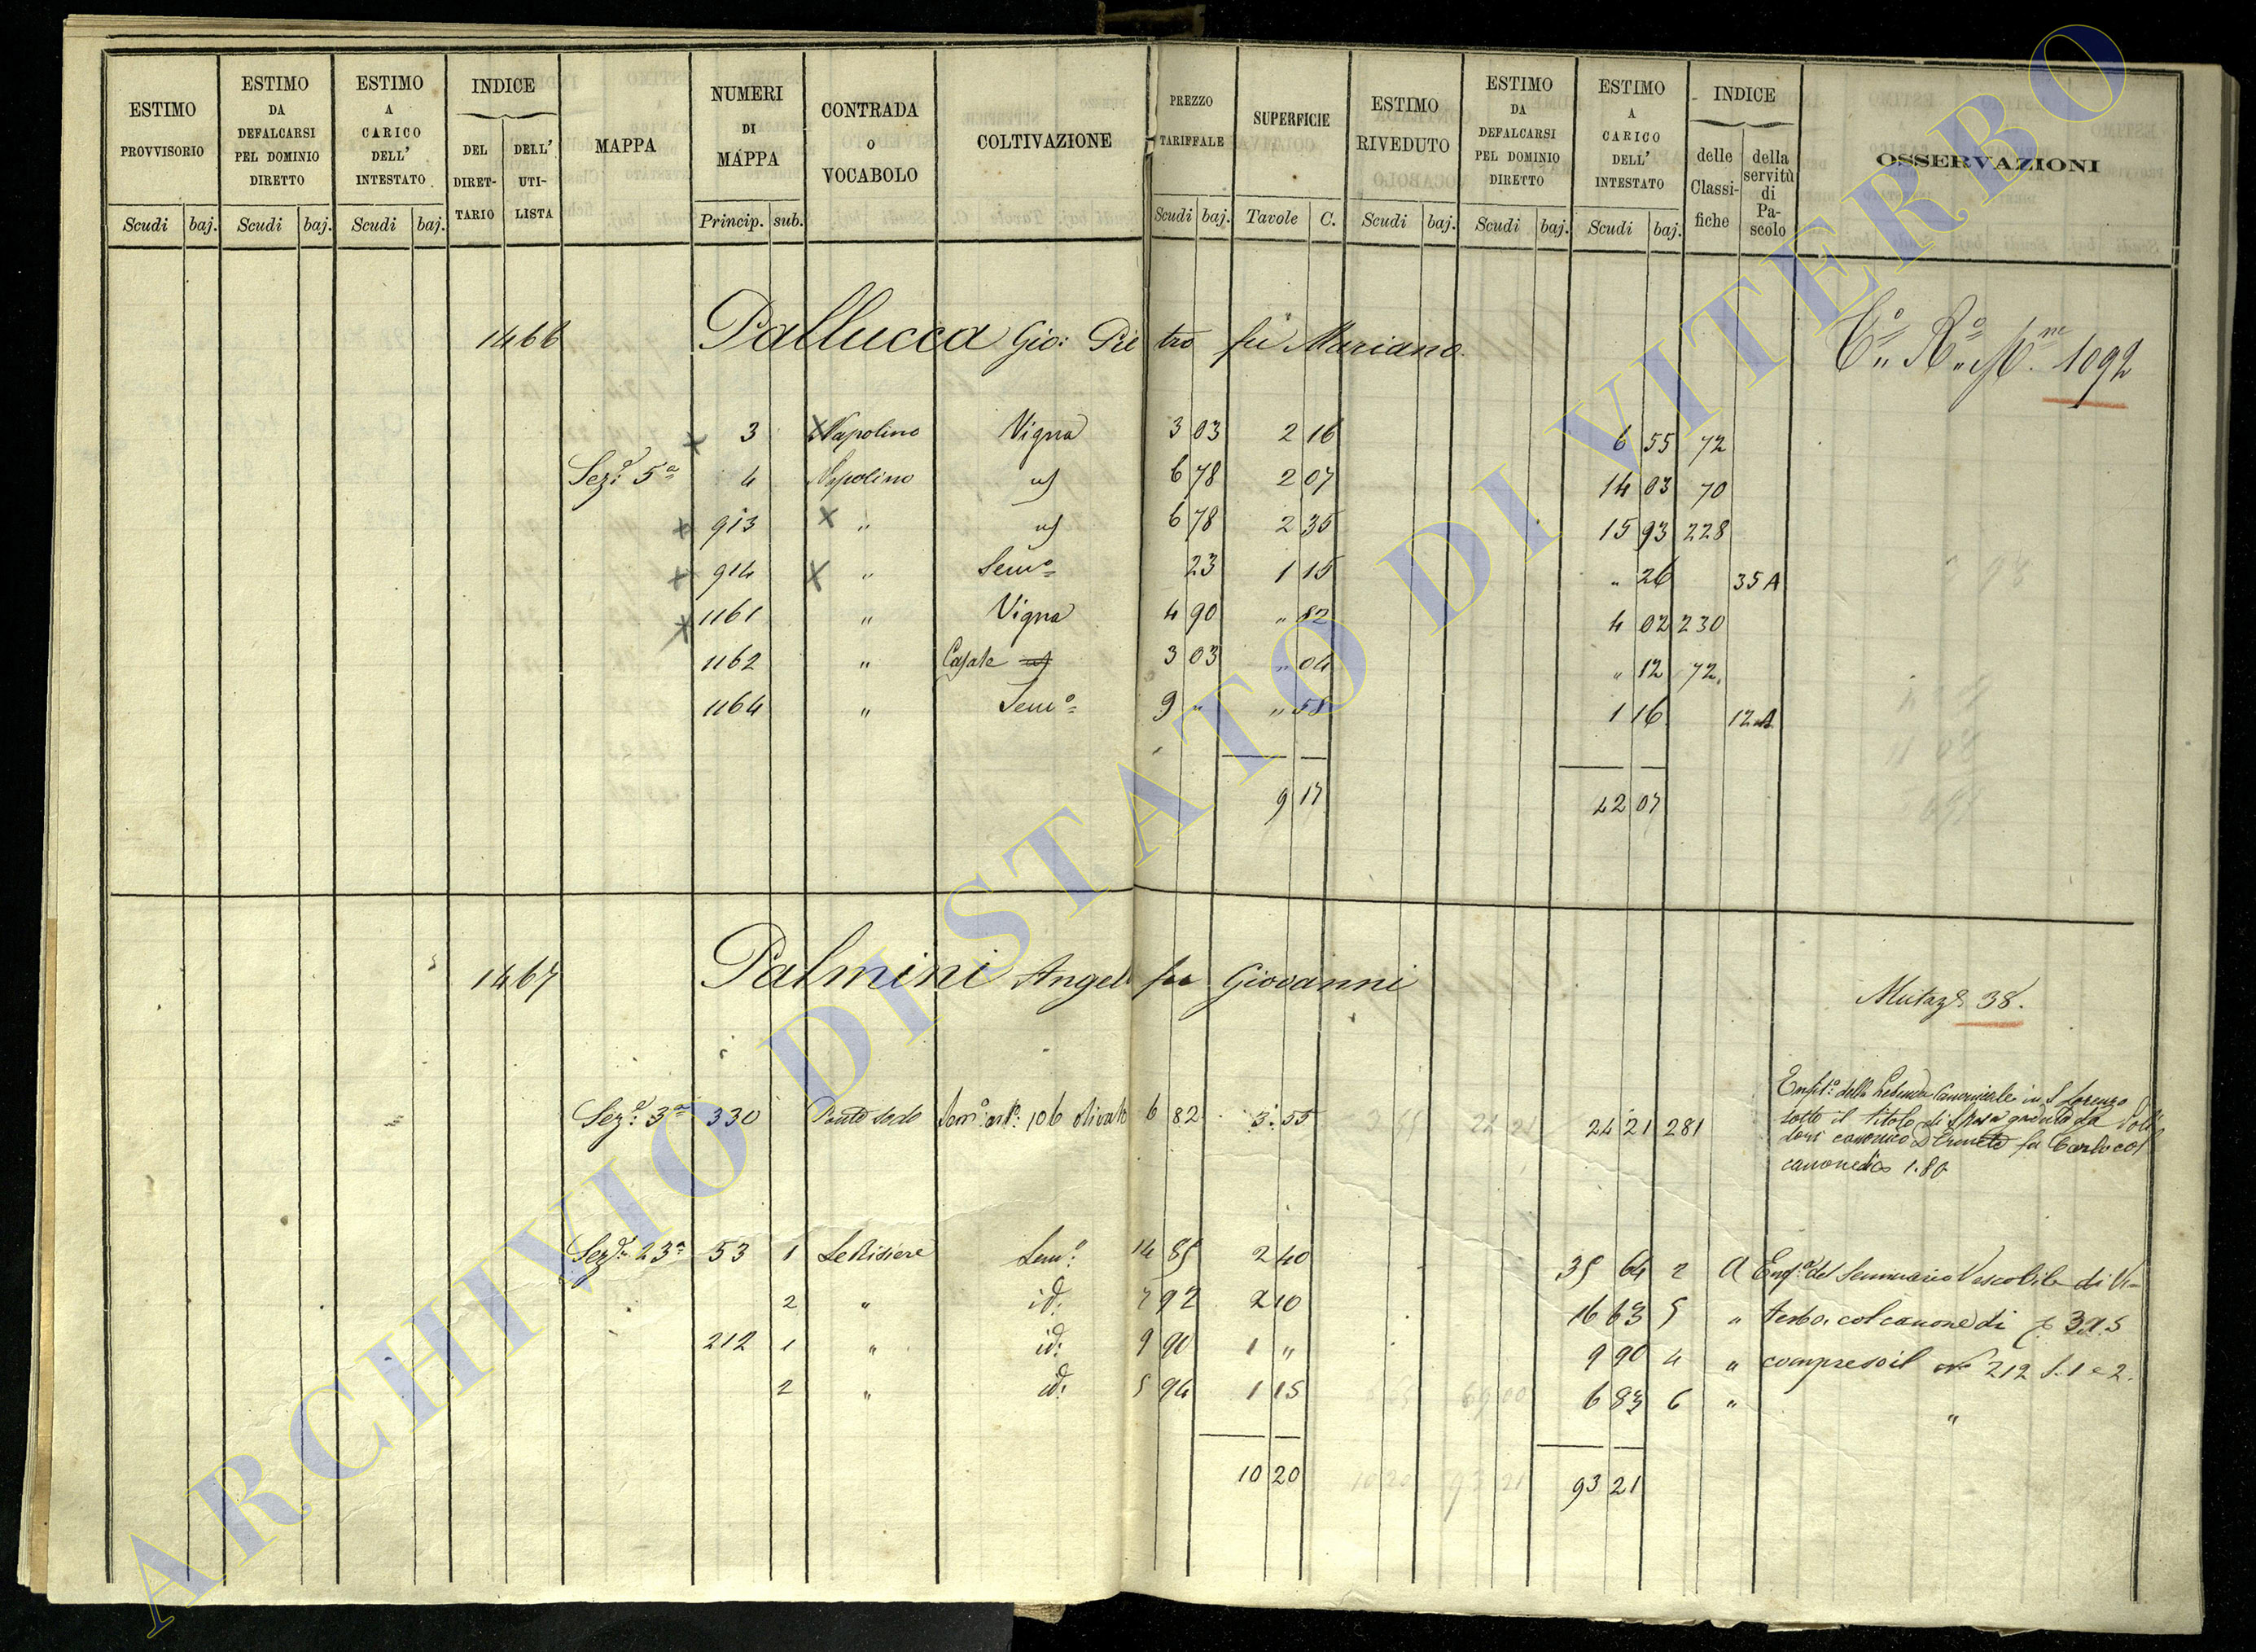 ESTIMO PROVVISORIO
Scudi baj.
ESTIMO DA DEFALCARSI PEL DOMINIO DIRETTO
Scudi baj.
ESTIMO A CARICO DELL' INTESTATO
Scudi baj.
INDICE
DEL DIRET-TARIO
DELL' UTI-LISTA
MAPPA
NUMERI DI MAPPA
Princip. sub.
CONTRADA O VOCABOLO
COLTIVAZIONE
PREZZO TARIFFALE
Scudi baj.
SUPERFICIE
Tavole C.
ESTIMO RIVEDUTO
Scudi baj.
ESTIMO DA DEFALCARSI PEL DOMINIO DIRETTO
Scudi baj.
ESTIMO A CARICO DELL' INTESTATO
Scudi baj.
INDICE
delle Classi-fiche
della servitù di Pa-scolo
OSSERVAZIONI
1466 Pallucca Gio: Pietro fu Mariano 1092
3 Napolino Vigna 3 03 2 16 6 55 72
Sez: 5a 4 Napolino 6 78 2 07 14 03 70
913 " 6 78 2 35 15 93 228
914 " Semo 23 1 15 " 26 35 A
1161 " Vigna 4 90 " 82 4 02 230
1162 " Casale 3 03 " 04 " 12 72
1164 " Semo 9 " " 58 1 16 12 A
9 17 42 07
1467 Palmini Angelo fu Giovanni 38.
Sez: 3a 330 olivato 6 82 3 55 24 21 281
in S. Lorenzo
sotto il titolo di
canonico fu Carlo col
canone di 1.80
Sez: 23a 53 1 Le Risiere Sem: 14 85 2 40 35 64 2 A del Seminario Vescovile di Vi-
2 " id: 7 92 2 10 16 63 5 " terbo col canone di 39.5
212 1 " id: 9 90 1 " 9 90 4 " compreso il No 212 S. 1 e 2.
2 " id: 5 94 1 15 6 83 6 " "
10 20 93 21
ARCHIVIO DI STATO DI VITERBO